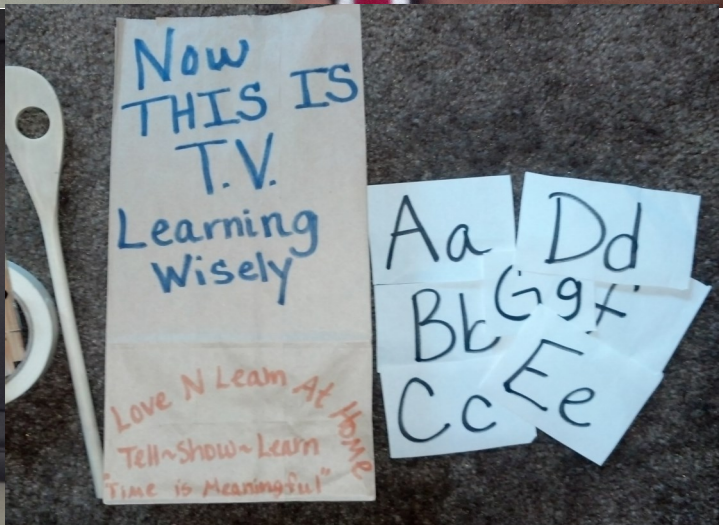 Now
THIS IS
T.V.
Learning
Wisely
Love N Learn At Home
Tell~Show~Learn
"Time is Meaningful"
Aa
Dd
Gg
Bb
Ee
Cc